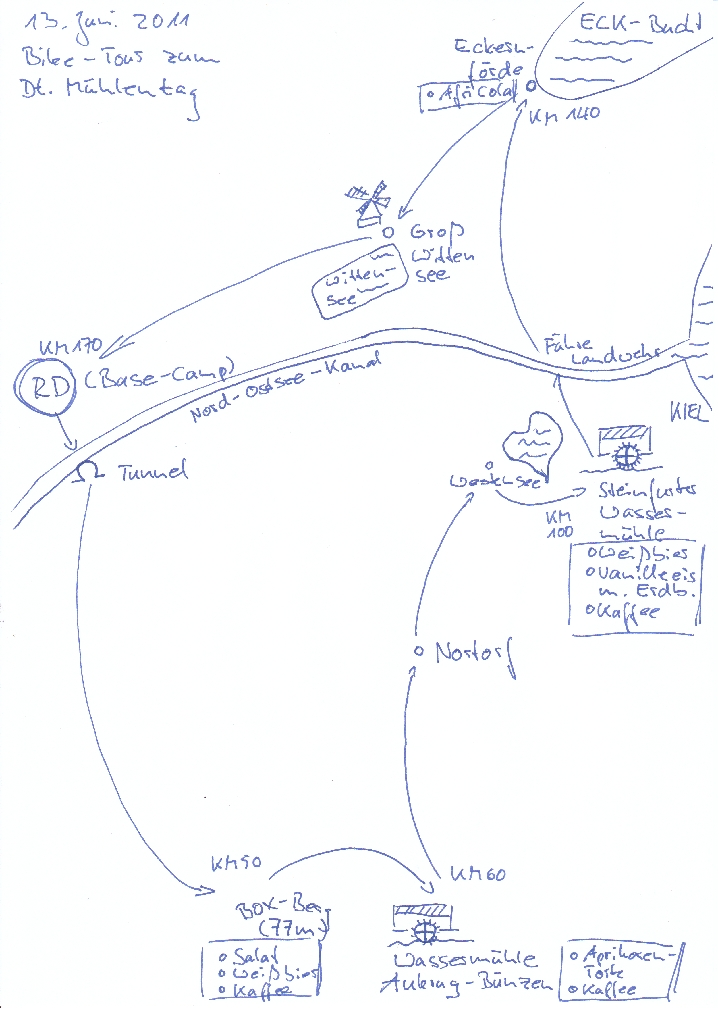 13. Juni 2011
Bike-Tour zum
Dt. Mühlentag
ECK-Bucht
Eckern-
förde
Africola
KM 140
Groß
Witten
see
Witten-
see
KM 170
RD (Base-Camp)
Nord-Ostsee-Kanal
Fähre
Landwehr
KIEL
Tunnel
Westensee
KM
100
Steinfurter
Wasser-
mühle
Weißbier
Vanilleeis
m. Erdb.
Kaffee
Nortorf
KM 50
BOX-Berg
(77m)
Salat
Weißbier
Kaffee
KM 60
Wassermühle
Aukrug-Bünzen
Aprikosen-
Torte
Kaffee